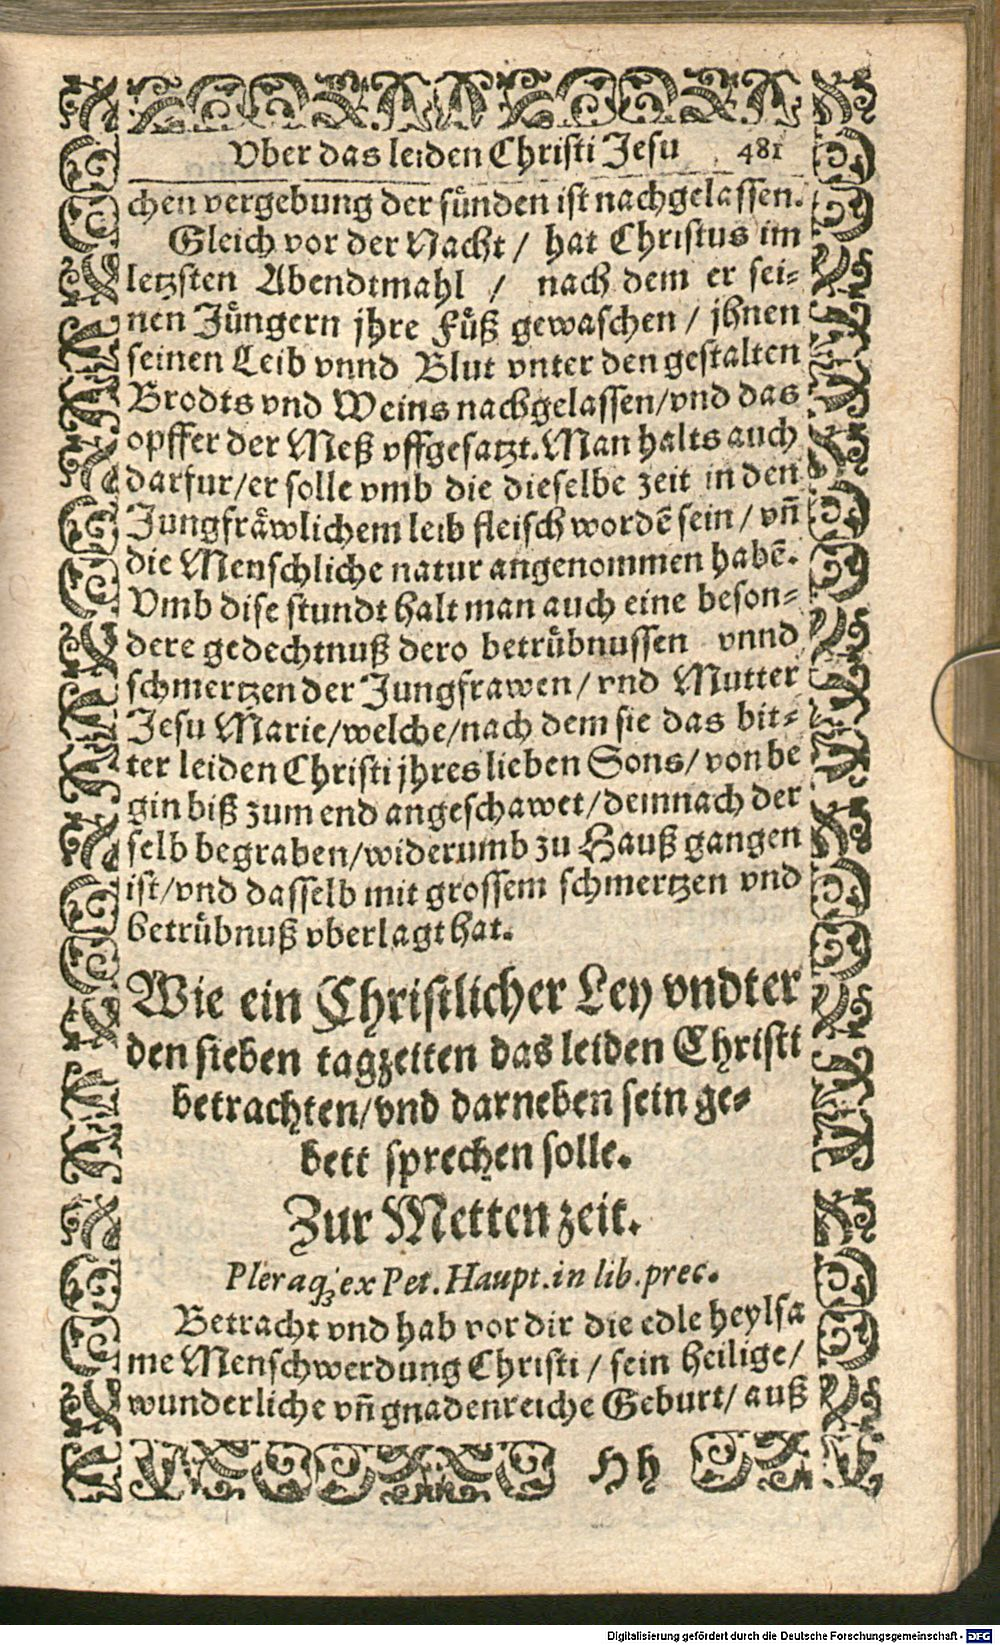 Vber das leiden Christi Jesu 481
chen vergebung der sünden ist nachgelassen.
Gleich vor der Nacht / hat Christus im
letzsten Abendtmahl / nach dem er sei⸗
nen Jüngern jhre Füß gewaschen / jhnen
seinen Leib vnnd Blut vnter den gestalten
Brodts vnd Weins nachgelassen/vnd das
opffer der Meß vffgesatzt. Man halts auch
darfur/er solle vmb die dieselbe zeit in den
Jungfräwlichem leib fleisch wordẽ sein / vñ
die Menschliche natur angenommen habẽ.
Vmb dise stundt halt man auch eine beson⸗
dere gedechtnuß dero betrübnussen vnnd
schmertzen der Jungfrawen/ vnd Mutter
Jesu Marie/welche/nach dem sie das bit⸗
ter leiden Christi jhres lieben Sons/ von be
gin biß zum end angeschawet/demnach der
selb begraben/widerumb zu Hauß gangen
ist/vnd dasselb mit grossem schmertzen vnd
betrübnuß vberlagt hat.
Wie ein Christlicher Ley vndter
den sieben tagzeiten das leiden Christi
betrachten/vnd darneben sein ge⸗
bett sprechen solle.
Zur Metten zeit.
Pleraq; ex Pet. Haupt. in lib. prec.
Betracht vnd hab vor dir die edle heylsa
me Menschwerdung Christi / sein heilige/
wunderliche vñ gnadenreiche Geburt/ auß
Hh
Digitalisierung gefördert durch die Deutsche Forschungsgemeinschaft - DFG